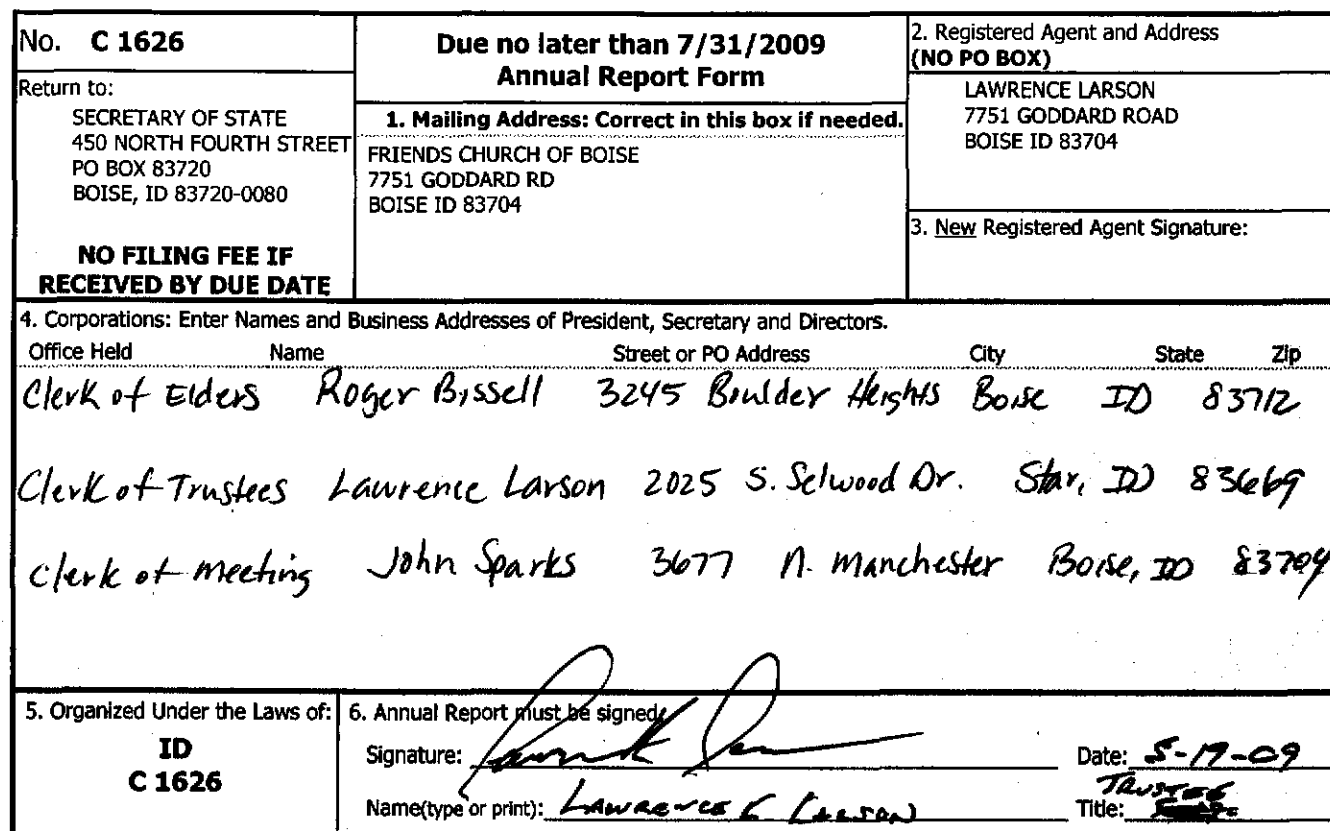 No. C 1626
Return to:
SECRETARY OF STATE
450 NORTH FOURTH STREET
PO BOX 83720
BOISE, ID 83720-0080
NO FILING FEE IF
RECEIVED BY DUE DATE
Due no later than 7/31/2009
Annual Report Form
1. Mailing Address: Correct in this box if needed.
FRIENDS CHURCH OF BOISE
7751 GODDARD RD
BOISE ID 83704
2. Registered Agent and Address
(NO PO BOX)
LAWRENCE LARSON
7751 GODDARD ROAD
BOISE ID 83704
3. New Registered Agent Signature:
4. Corporations: Enter Names and Business Addresses of President, Secretary and Directors.
Office Held Name Street or PO Address City State Zip
Clerk of Elders Roger Bissell 3245 Boulder Heights Boise ID 83712
Clerk of Trustees Lawrence Larson 2025 S. Selwood Dr. Star, ID 83669
Clerk of Meeting John Sparks 3677 N. Manchester Boise, ID 83704
5. Organized Under the Laws of:
ID
C 1626
6. Annual Report must be signed.
Signature:
Date: 5-19-09
Name(type or print): LAWRENCE E LARSON
Title: TRUSTEE